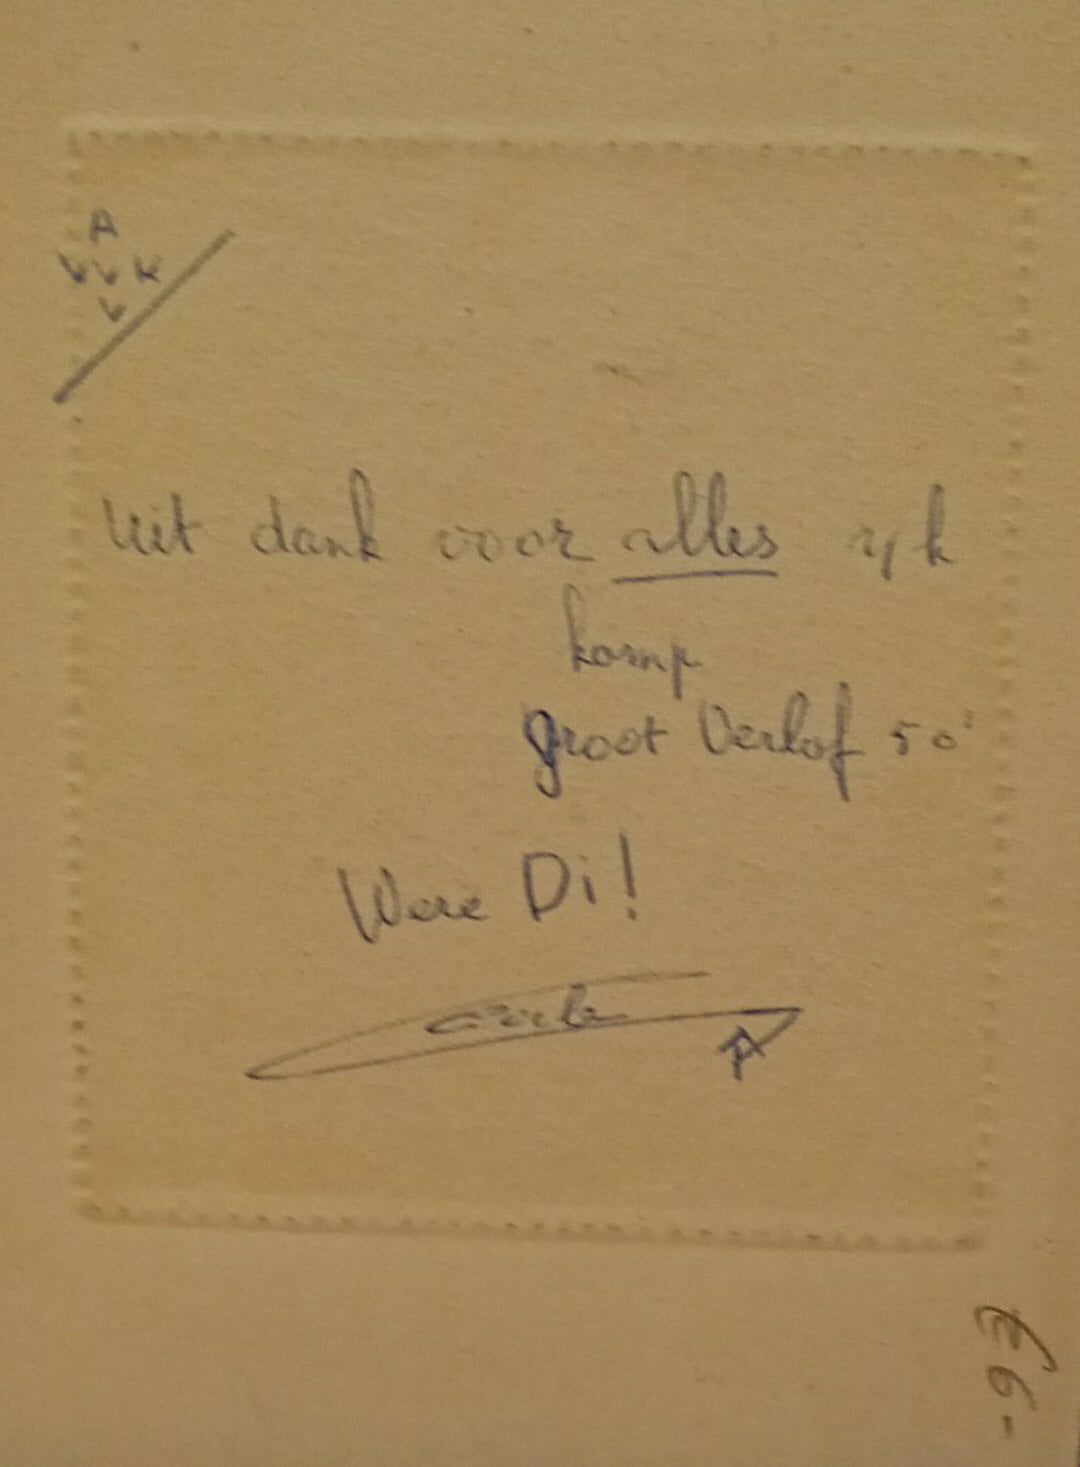 A
V V K
V
Uit dank voor alles
kamp
groot Verlof 50'
Were Di!